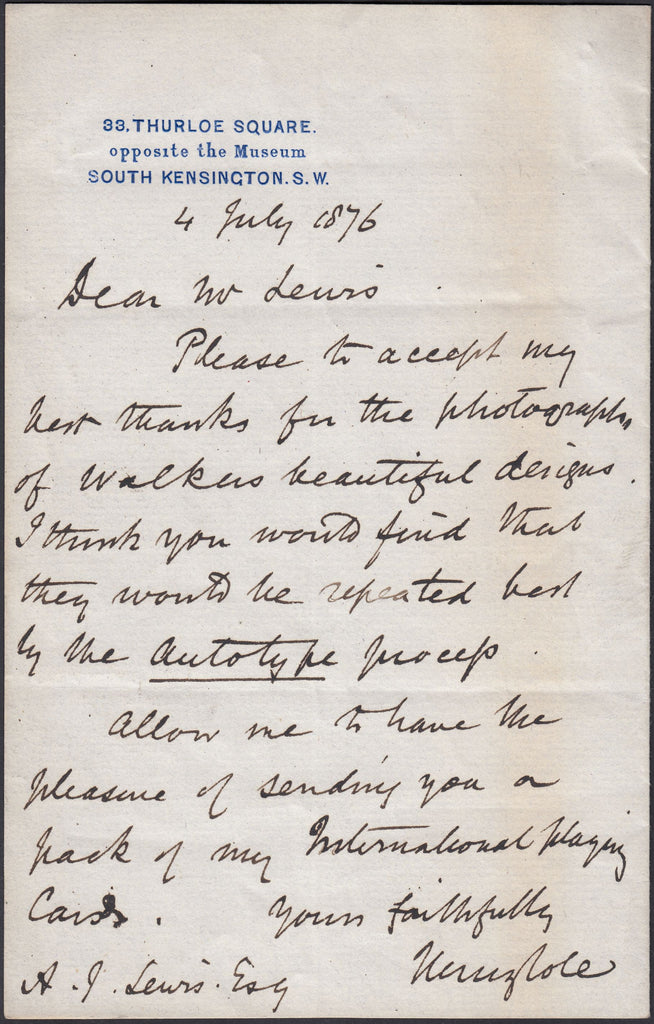 33, THURLOE SQUARE.
opposite the Museum
SOUTH KENSINGTON. S. W.
4 July 1876
Dear Mr Lewis
Please to accept my
best thanks for the photographs
of Walkers beautiful designs.
I think you would find that
they would be repeated best
by the autotype process.
Allow me to have the
pleasure of sending you a
pack of my International playing
Cards. Yours faithfully
Henry Cole
A. J. Lewis. Esq